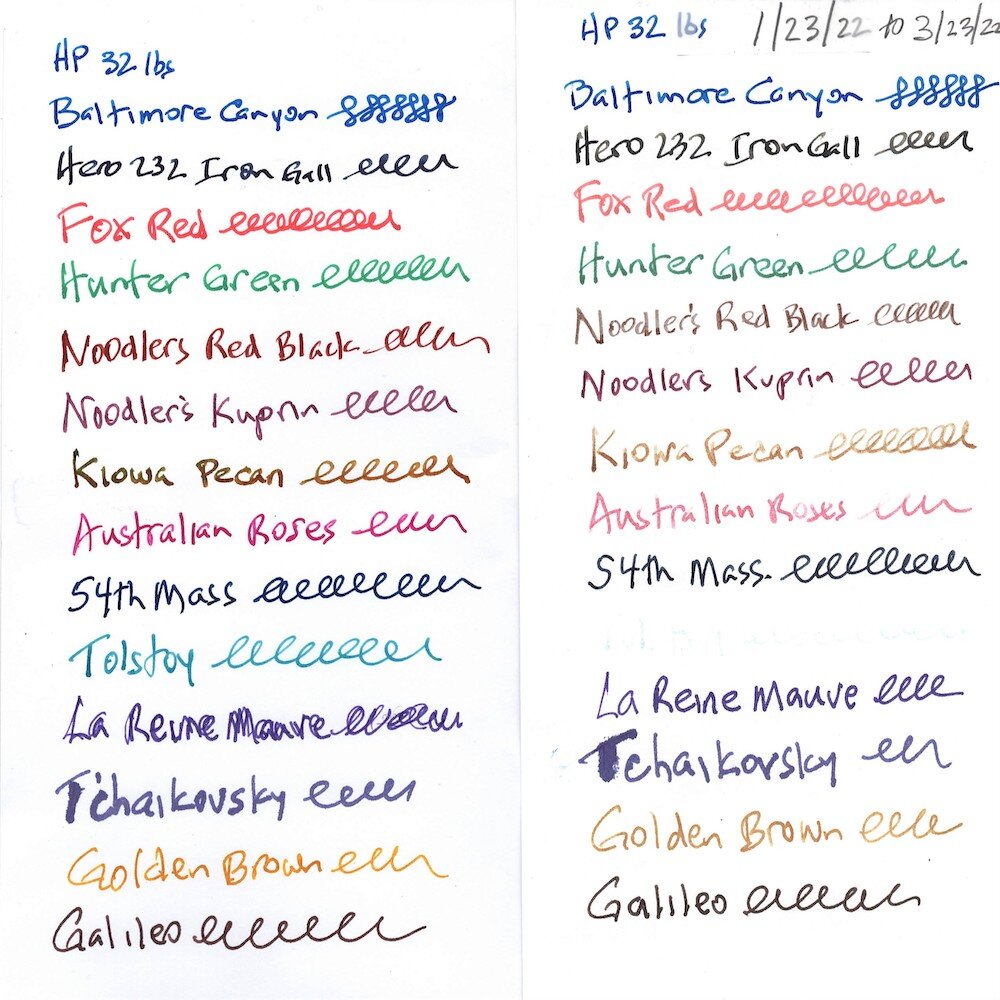 HP 32 lbs
Baltimore Canyon
Hero 232 Iron Gall
Fox Red
Hunter Green
Noodlers Red Black
Noodler's Kuprin
Kiowa Pecan
Australian Roses
54th Mass
Tolstoy
La Reine Mauve
Tchaikovsky
Golden Brown
Galileo
HP 32 lbs 1/23/22 to 3/23/22
Baltimore Canyon
Hero 232 Iron Gall
Fox Red
Hunter Green
Noodler's Red Black
Noodlers Kuprin
Kiowa Pecan
Australian Roses
54th Mass.
La Reine Mauve
Tchaikovsky
Golden Brown
Galileo